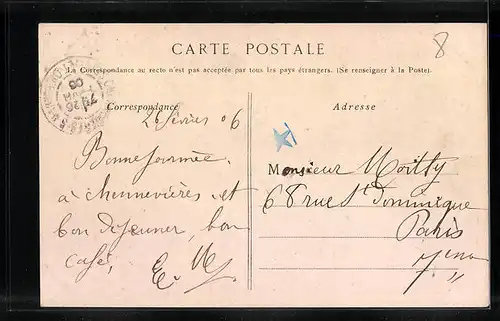 8
CARTE POSTALE
La Correspondance au recto n'est pas acceptée par tous les pays étrangers. (Se renseigner à la Poste).
Correspondance
Adresse
26 février 06
Bonne journée
à chennevières et
bon déjeuner, bon
café,
Monsieur
68 rue St Dominique
Paris
7eme